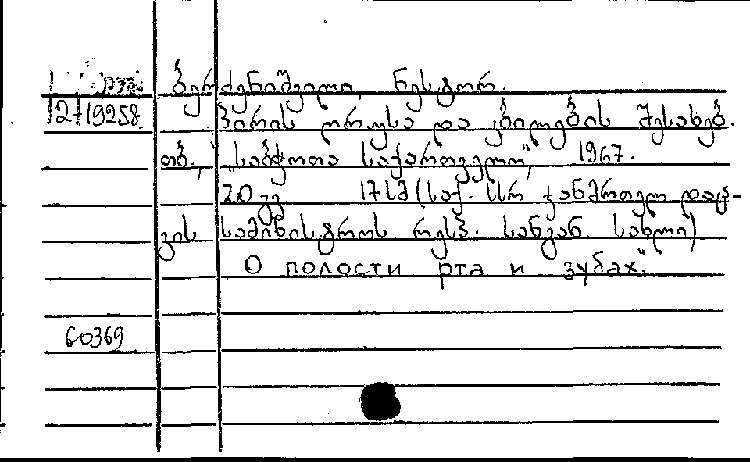 ბერძენიშვილი, ნესტორ.
12/19258
პირის ღრუსა და კბილების შესახებ.
თბ., "საბჭოთა საქართველო", 1967.
20 გვ. 17სმ (საქ. სსრ ჯანმრთელ. დაც-
ვის სამინისტროს რესპ. სანგან. სახლი)
"О полости рта и зубах."
60369